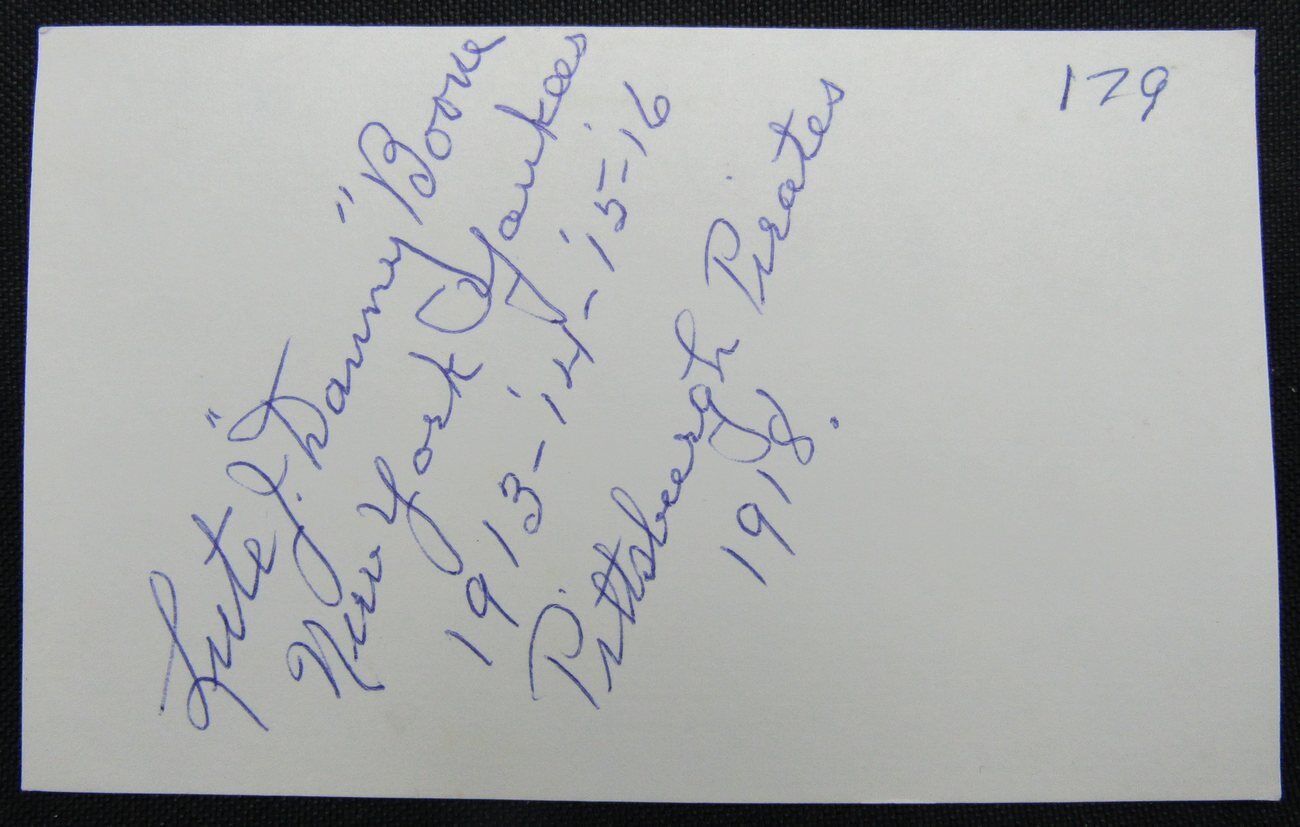 129
Lute J. "Danny" Boone
New York Yankees
1913-'14-'15-'16
Pittsburgh Pirates
1918.